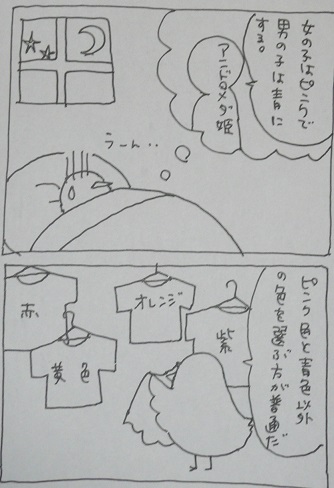 女の子はピンクで
男の子は青に
する。
アンドロメダ姫
うーん‥
ピンク色と青色以外
の色を選ぶ方が普通だ
紫
オレンジ
赤
黄色